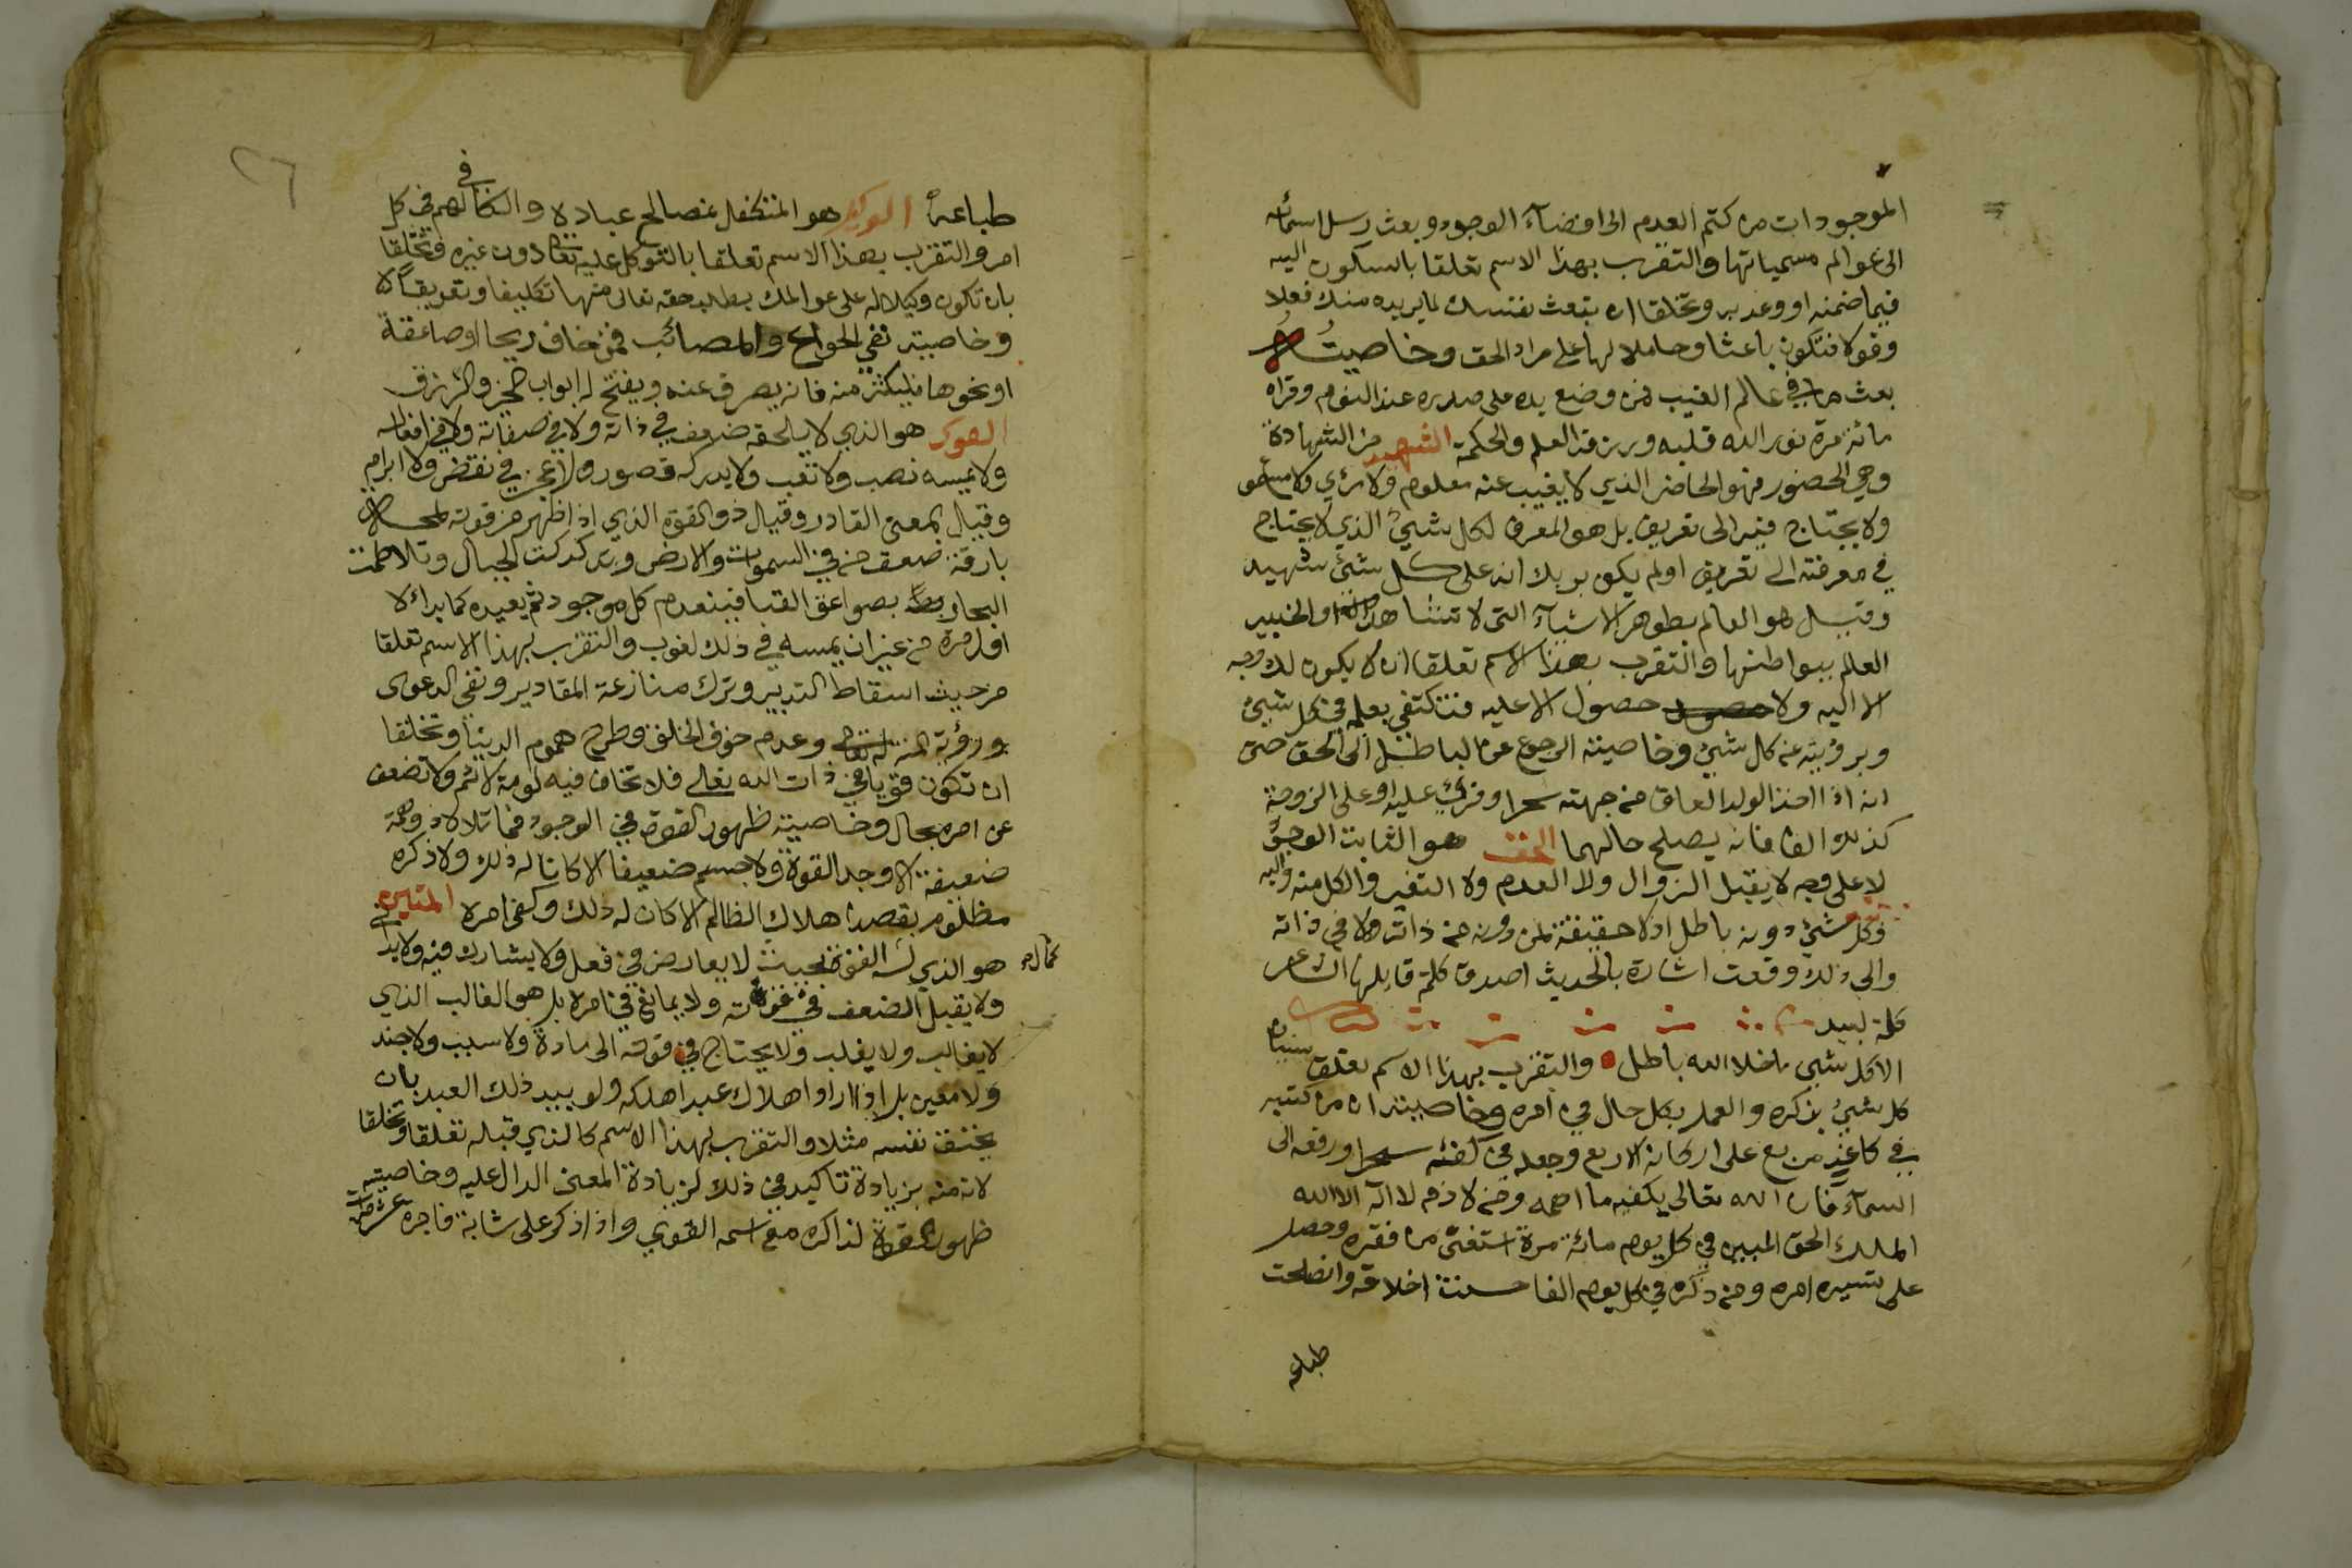 الموجودات من كتم العدم الى افضاء الوجود وبعث رسل اسمائه
الى عوالم مسمياتها والتقرب بهذا الاسم تعلقا بالسكون اليه
فيما ضمنه او وعد به وتخلقا ان تبعث نفسك لما يريده منك فعلا
وقولا فتكون باعثا وحاملا لها على مراد الحق وخاصيته
بعث ما في عالم الغيب فمن وضع يده على صدره عند النوم وقراه
مائة مرة نور الله قلبه ورزقه العلم والحكمة الشهيد من الشهادة
وهي الحضور فهو الحاضر الذي لا يغيب عنه معلوم ولا مرئي ولا مسموع
ولا يحتاج فيه الى تعريف بل هو المعرف لكل شيء الذي لا يحتاج
في معرفته الى تعريف اولم يكف بربك انه على كل شيء شهيد
وقيل هو العالم بظوهر الاشياء التي لا تشاهد والخبير
العالم ببواطنها والتقرب بهذا الاسم تعلقا ان لا يكون لك وجه
الا اليه ولا حصول الا عليه فتكتفي بعلمه في كل شيء
وبرؤيته عن كل شيء وخاصيته الرجوع عن الباطل الى الحق حتى
انه اذا اخذ الولد العاق من جبهته سحرا وقرئ عليه او على الزوجة
كذلك الفا فانه يصلح حالهما الحق هو الثابت الوجود
لا على وجه لا يقبل الزوال ولا العدم ولا التغير والكل منه واليه
فكل شيء دونه باطل اذ لا حقيقة لمن دونه من ذاته ولا في ذاته
والى ذلك وقعت اشارة بالحديث اصدق كلمة قايلها الشاعر
كلمة لبيد
الا كل شيء ما خلا الله باطل والتقرب بهذا الاسم تعلق نسيان
كل شيء بذكره والعمل بكل حال في امره وخاصيته ان من كتبه
في كاغد مربع على اركانه الاربع وجعله في كفه سحرا ورفعه الى
السماء فان الله تعالى يكفيه ما اهمه ومن لازم لا اله الا الله
الملك الحق المبين في كل يوم مائة مرة استغنى من فقره وحصل
على تيسير امره ومن ذكره في كل يوم الفا حسنت اخلاقه وانصلحت
طباعه
٢٦
طباعه الوكيل هو المتكفل بمصالح عباده والكافي لهم في كل
امر والتقرب بهذا الاسم تعلقا بالتوكل عليه تعالى دون غيره وتخلقا
بان تكون وكيلا له على عوالمك بطلب حقه تعالى منها تكليفا وتعريفا
وخاصيته نفي الحوائج والمصائب فمن خاف ريحا او صاعقة
او نحوها فليكثر منه فانه يصرف عنه ويفتح له ابواب الخير والرزق
القوي هو الذي لا يلحقه ضعف في ذاته ولا في صفاته ولا في افعاله
ولا يمسه نصب ولا تعب ولا يدركه قصور ولا عجز في نقض ولا ابرام
وقيل بمعنى القادر وقيل ذو القوة الذي اذا ظهر من قوته
بارقة ضعف من في السموات والارض وتدكدكت الجبال وتلاطمت
البحار بصواعق القيافينعدم كل موجود ثم يعيده كما بداء
اول مرة من غير ان يمسه في ذلك لغوب والتقرب بهذا الاسم تعلقا
من حيث اسقاط التدبير وترك منازعة المقادير ونفي الدعوى
ورؤية المنة له تعالى وعدم خوف الخلق وطرح هموم الدنيا وتخلقا
ان تكون قويا في ذات الله تعالى فلا تخاف فيه لومة لائم ولا تضعف
عن امره بحال وخاصيته ظهور القوة في الوجود فما تلاه ذو همة
ضعيفة الا وجد القوة ولا جسم ضعيفا الا كان له ذلك ولا ذكره
مظلوم بقصد هلاك الظالم الا كان له ذلك وكفى امره المتين
كمال هو الذي له القوة بحيث لا يعارض في فعل ولا يشارك فيه ولا يدا في
ولا يقبل الضعف في قوته ولا يمانع في امره بل هو الغالب الذي
لا يغالب ولا يغلب ولا يحتاج في قوته الى مادة ولا سبب ولا جند
ولا معين بل اذا اراد اهلاك عبد اهلكه ولو بيد ذلك العبد بان
يخنق نفسه مثلا والتقرب بهذا الاسم كالذي قبله تعلقا وتخلقا
لانه منه بزيادة تاكيد في ذلك لزيادة المعنى الدال عليه وخاصيته
ظهور القوة لذاكره مع اسمه القوي واذا ذكر على شابة فاجرة عشر مرات